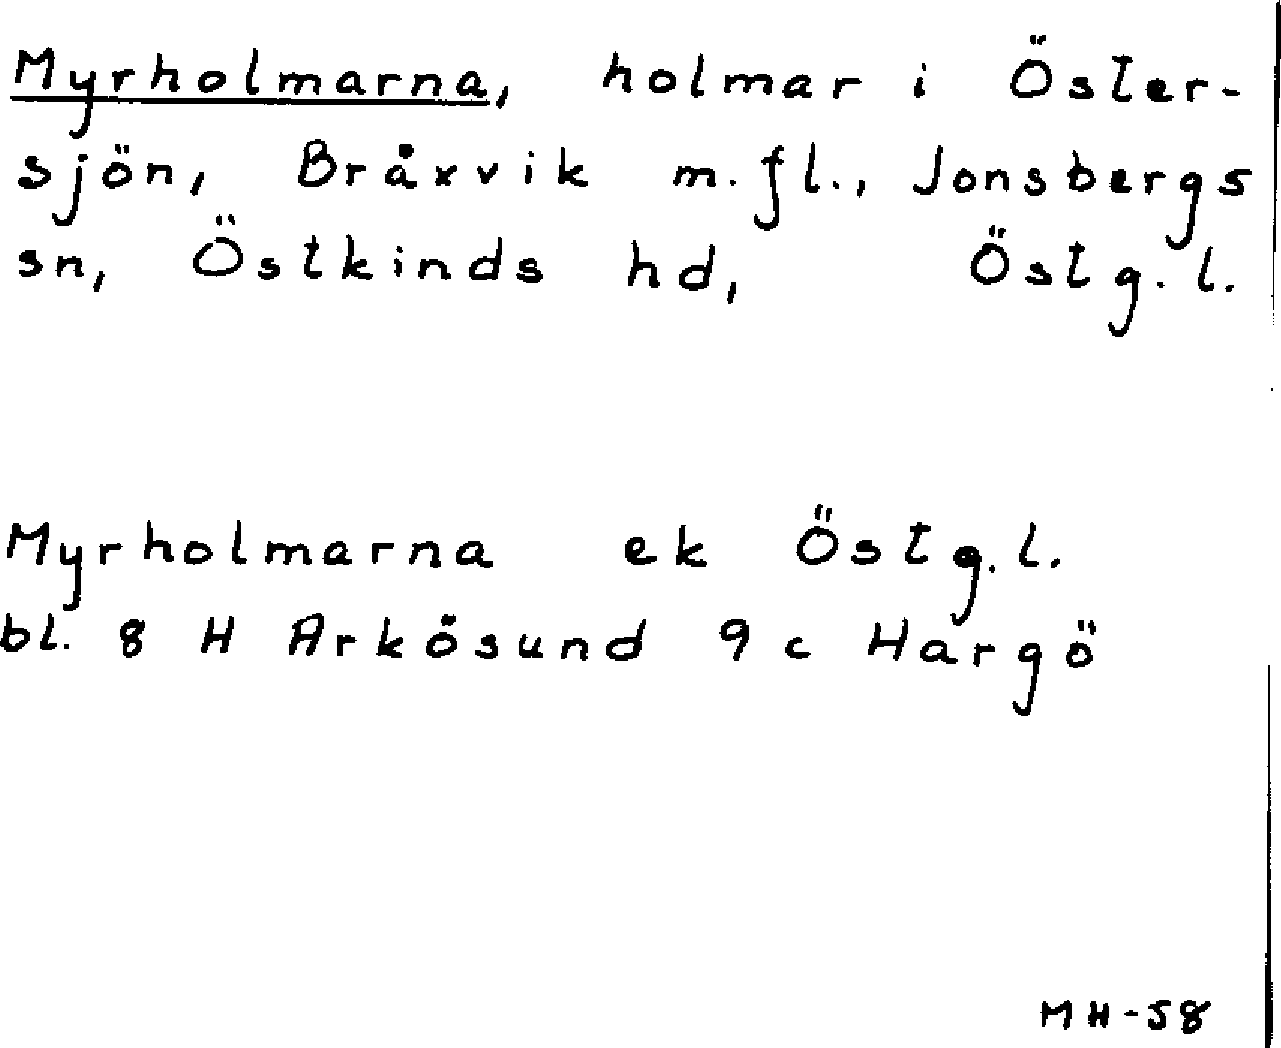 Myrholmarna, holmar i Öster-
sjön, Bråxvik m.fl., Jonsbergs
sn, Östkinds hd, Östg.l.
Myrholmarna ek Östg.l.
bl. 8 H Arkösund 9 c Hargö
MH-58